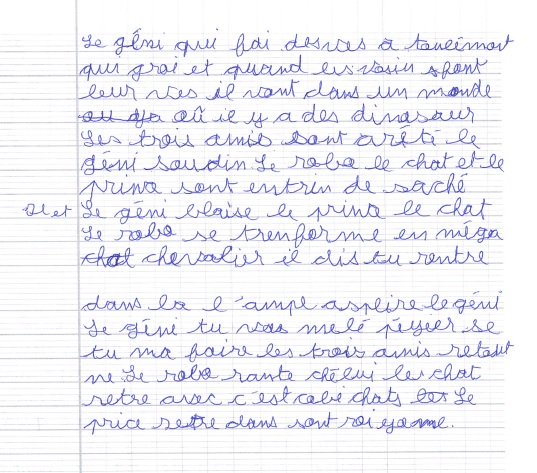 Le géni qui fai desvœs a toulémont
qui groi et quand les voisin sfont
leur vœs il vont dans un monde
ou ya où il y a des dinosaur
Les trois amis sont arêté le
géni soudin Le robo le chat et le
prins sont entrin de saché
Le géni blaise le prins le chat
Le robo se trenforme en méga
chat chevalier il dis tu rentre
dans la l'ampe aspeire le géni
Le géni tu vas melé péyeer se
tu ma faire les trois amis retout
ne Le robo rante chélui le chat
retre avec c'est cabé chats Le
price retre dans sont roi yome.